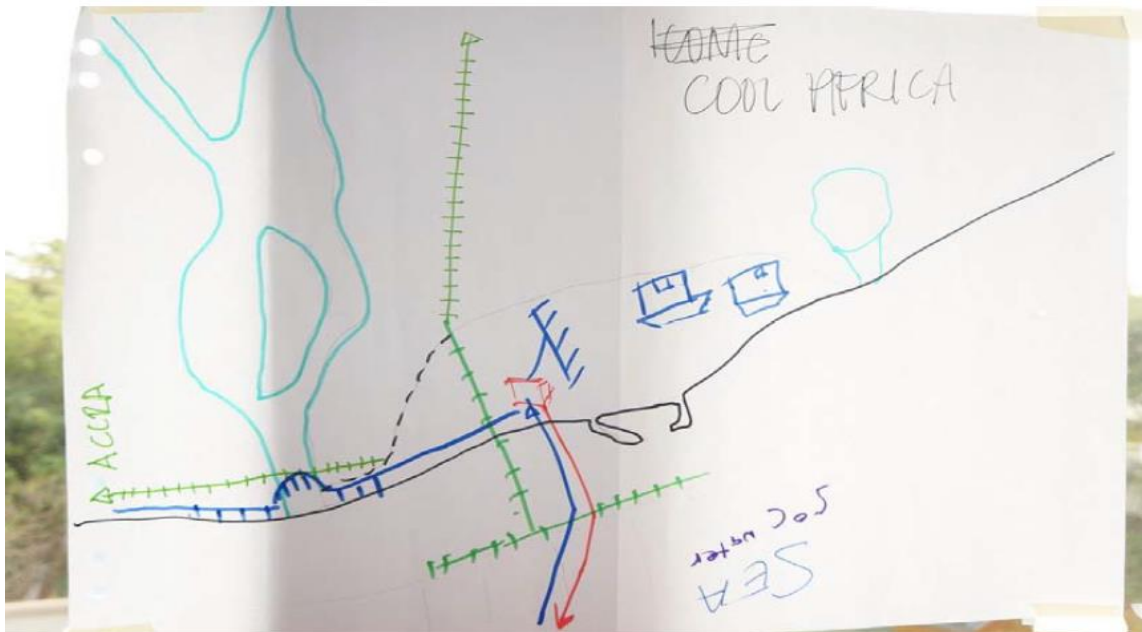 COOL AFRICA
ACCRA
SEA
5°C water